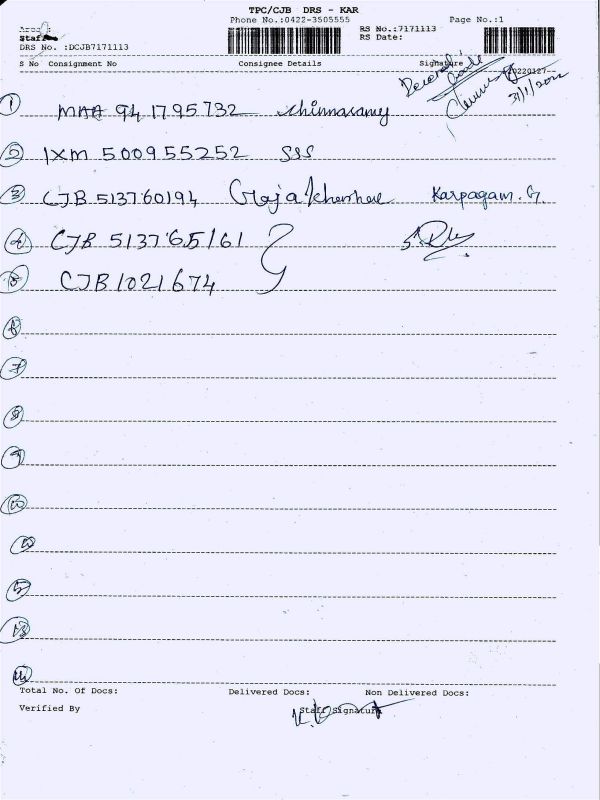 TPC/CJB DRS - KAR
Phone No.:0422-3505555 Page No.:1
RS No.:7171113
Staff
RS Date:
DRS No. :DCJB7171113
S No Consignment No Consignee Details Signature
20220127
Received
Goods
31/1/2022
1 MAA 941795732 chinnasamy
2 IXM 500955252 SSS
3 CJB 513760194 Karpagam. G.
4 CJB 513765161
5 CJB 1021674
6
7
8
9
10
11
12
13
14
Total No. Of Docs: Delivered Docs: Non Delivered Docs:
Verified By Staff Signature